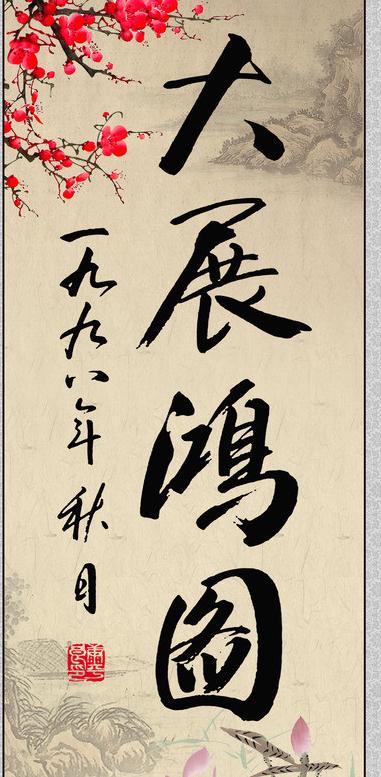 大展鸿图
一九九八年秋月